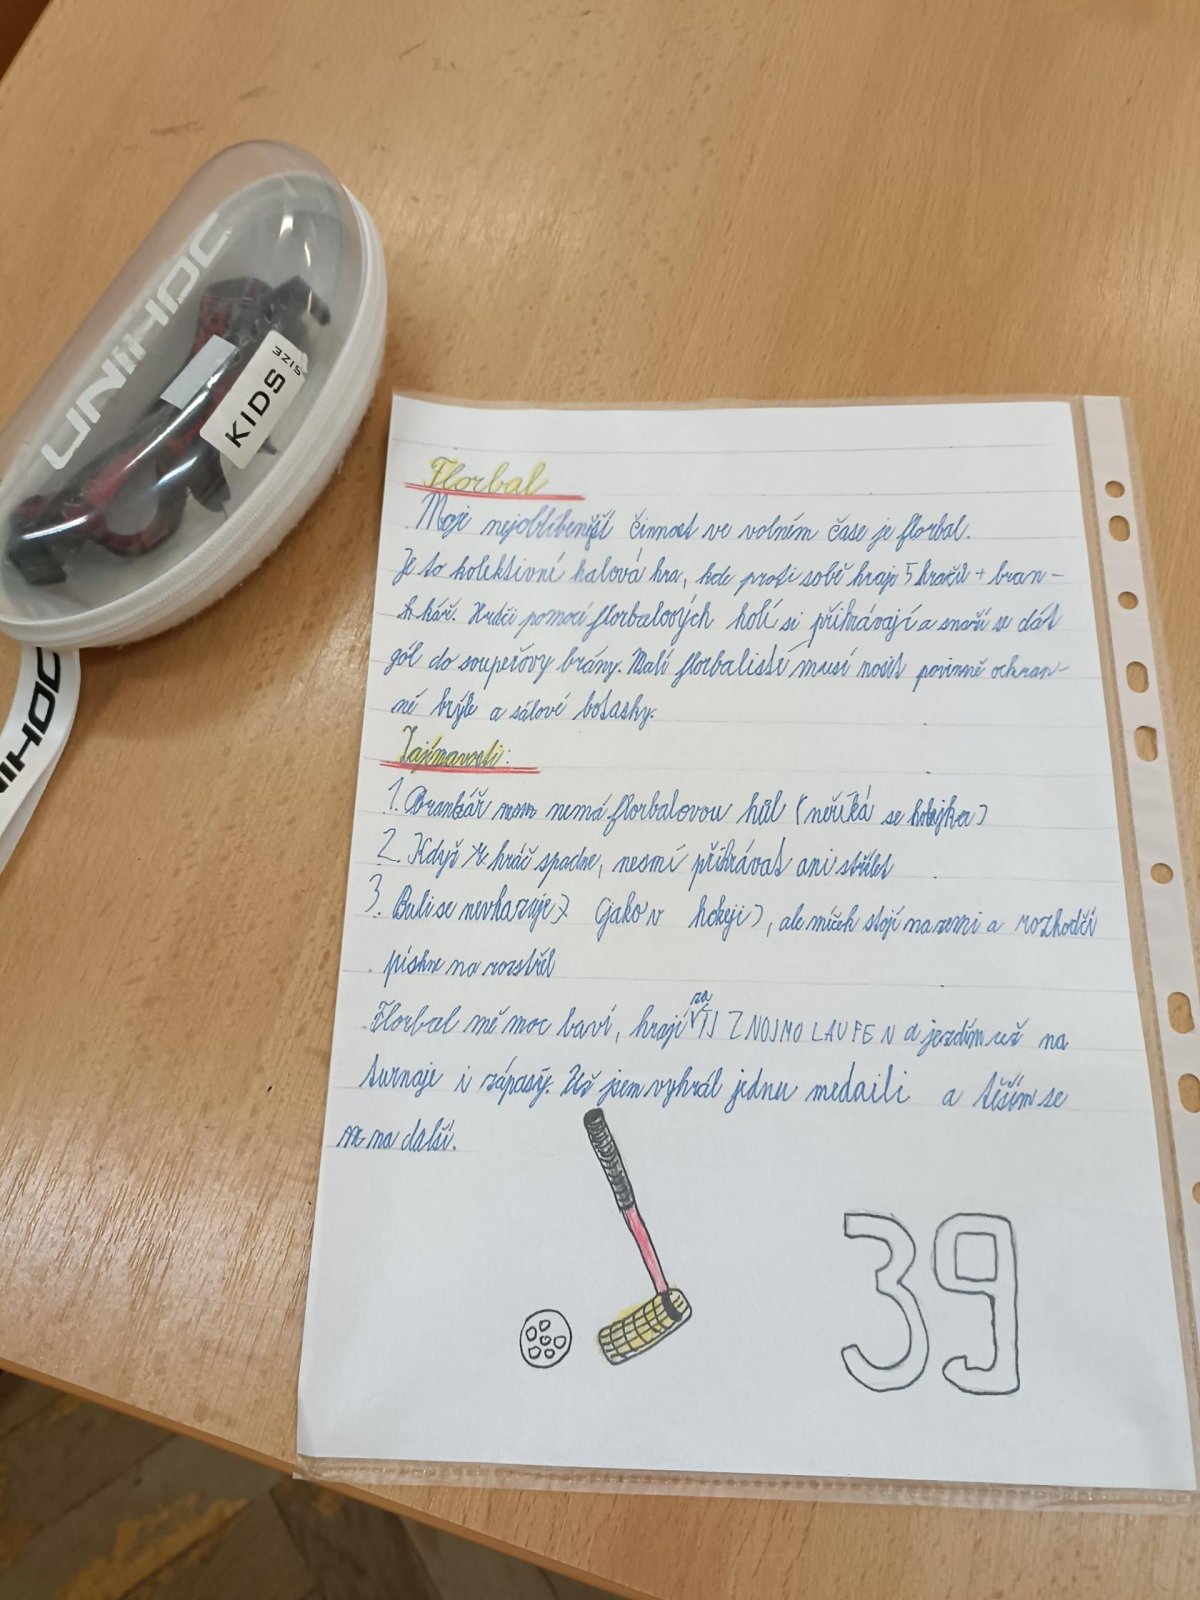 UNIHOC
KIDS
SIZE
UNIHOC
Florbal
Moje nejoblíbenější činnost ve volném čase je florbal.
Je to kolektivní halová hra, kde proti sobě hraje 5 hráčů + bran-
kář. Hráči pomocí florbalových holí si přihrávají a snaží se dát
gól do soupeřovy brány. Malí florbalisté musí nosit povinně ochran-
né brýle a sálové botasky.
Zajímavosti:
1. Brankář nemá florbalovou hůl (neříká se hokejka)
2. Když hráč spadne, nesmí přihrávat ani střílet
3. Buli se nevhazuje (jako v hokeji), ale míček stojí na zemi a rozhodčí
pískne na rozstřel
Florbal mě moc baví, hraji za TJ ZNOJMO LAUFEN a jezdím už na
turnaje i zápasy. Už jsem vyhrál jednu medaili a těším se
na další.
39